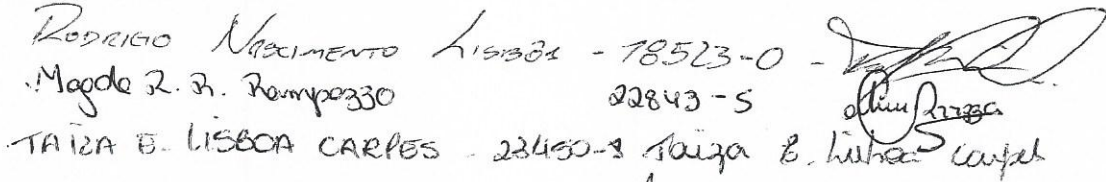 Rodrigo Nascimento Lisbôa - 18523-0 -
Magda R. R. Rampazzo 22843-5
TAÍZA E. LISBOA CARPES 23450-8 Taiza E. Lisboa Carpes